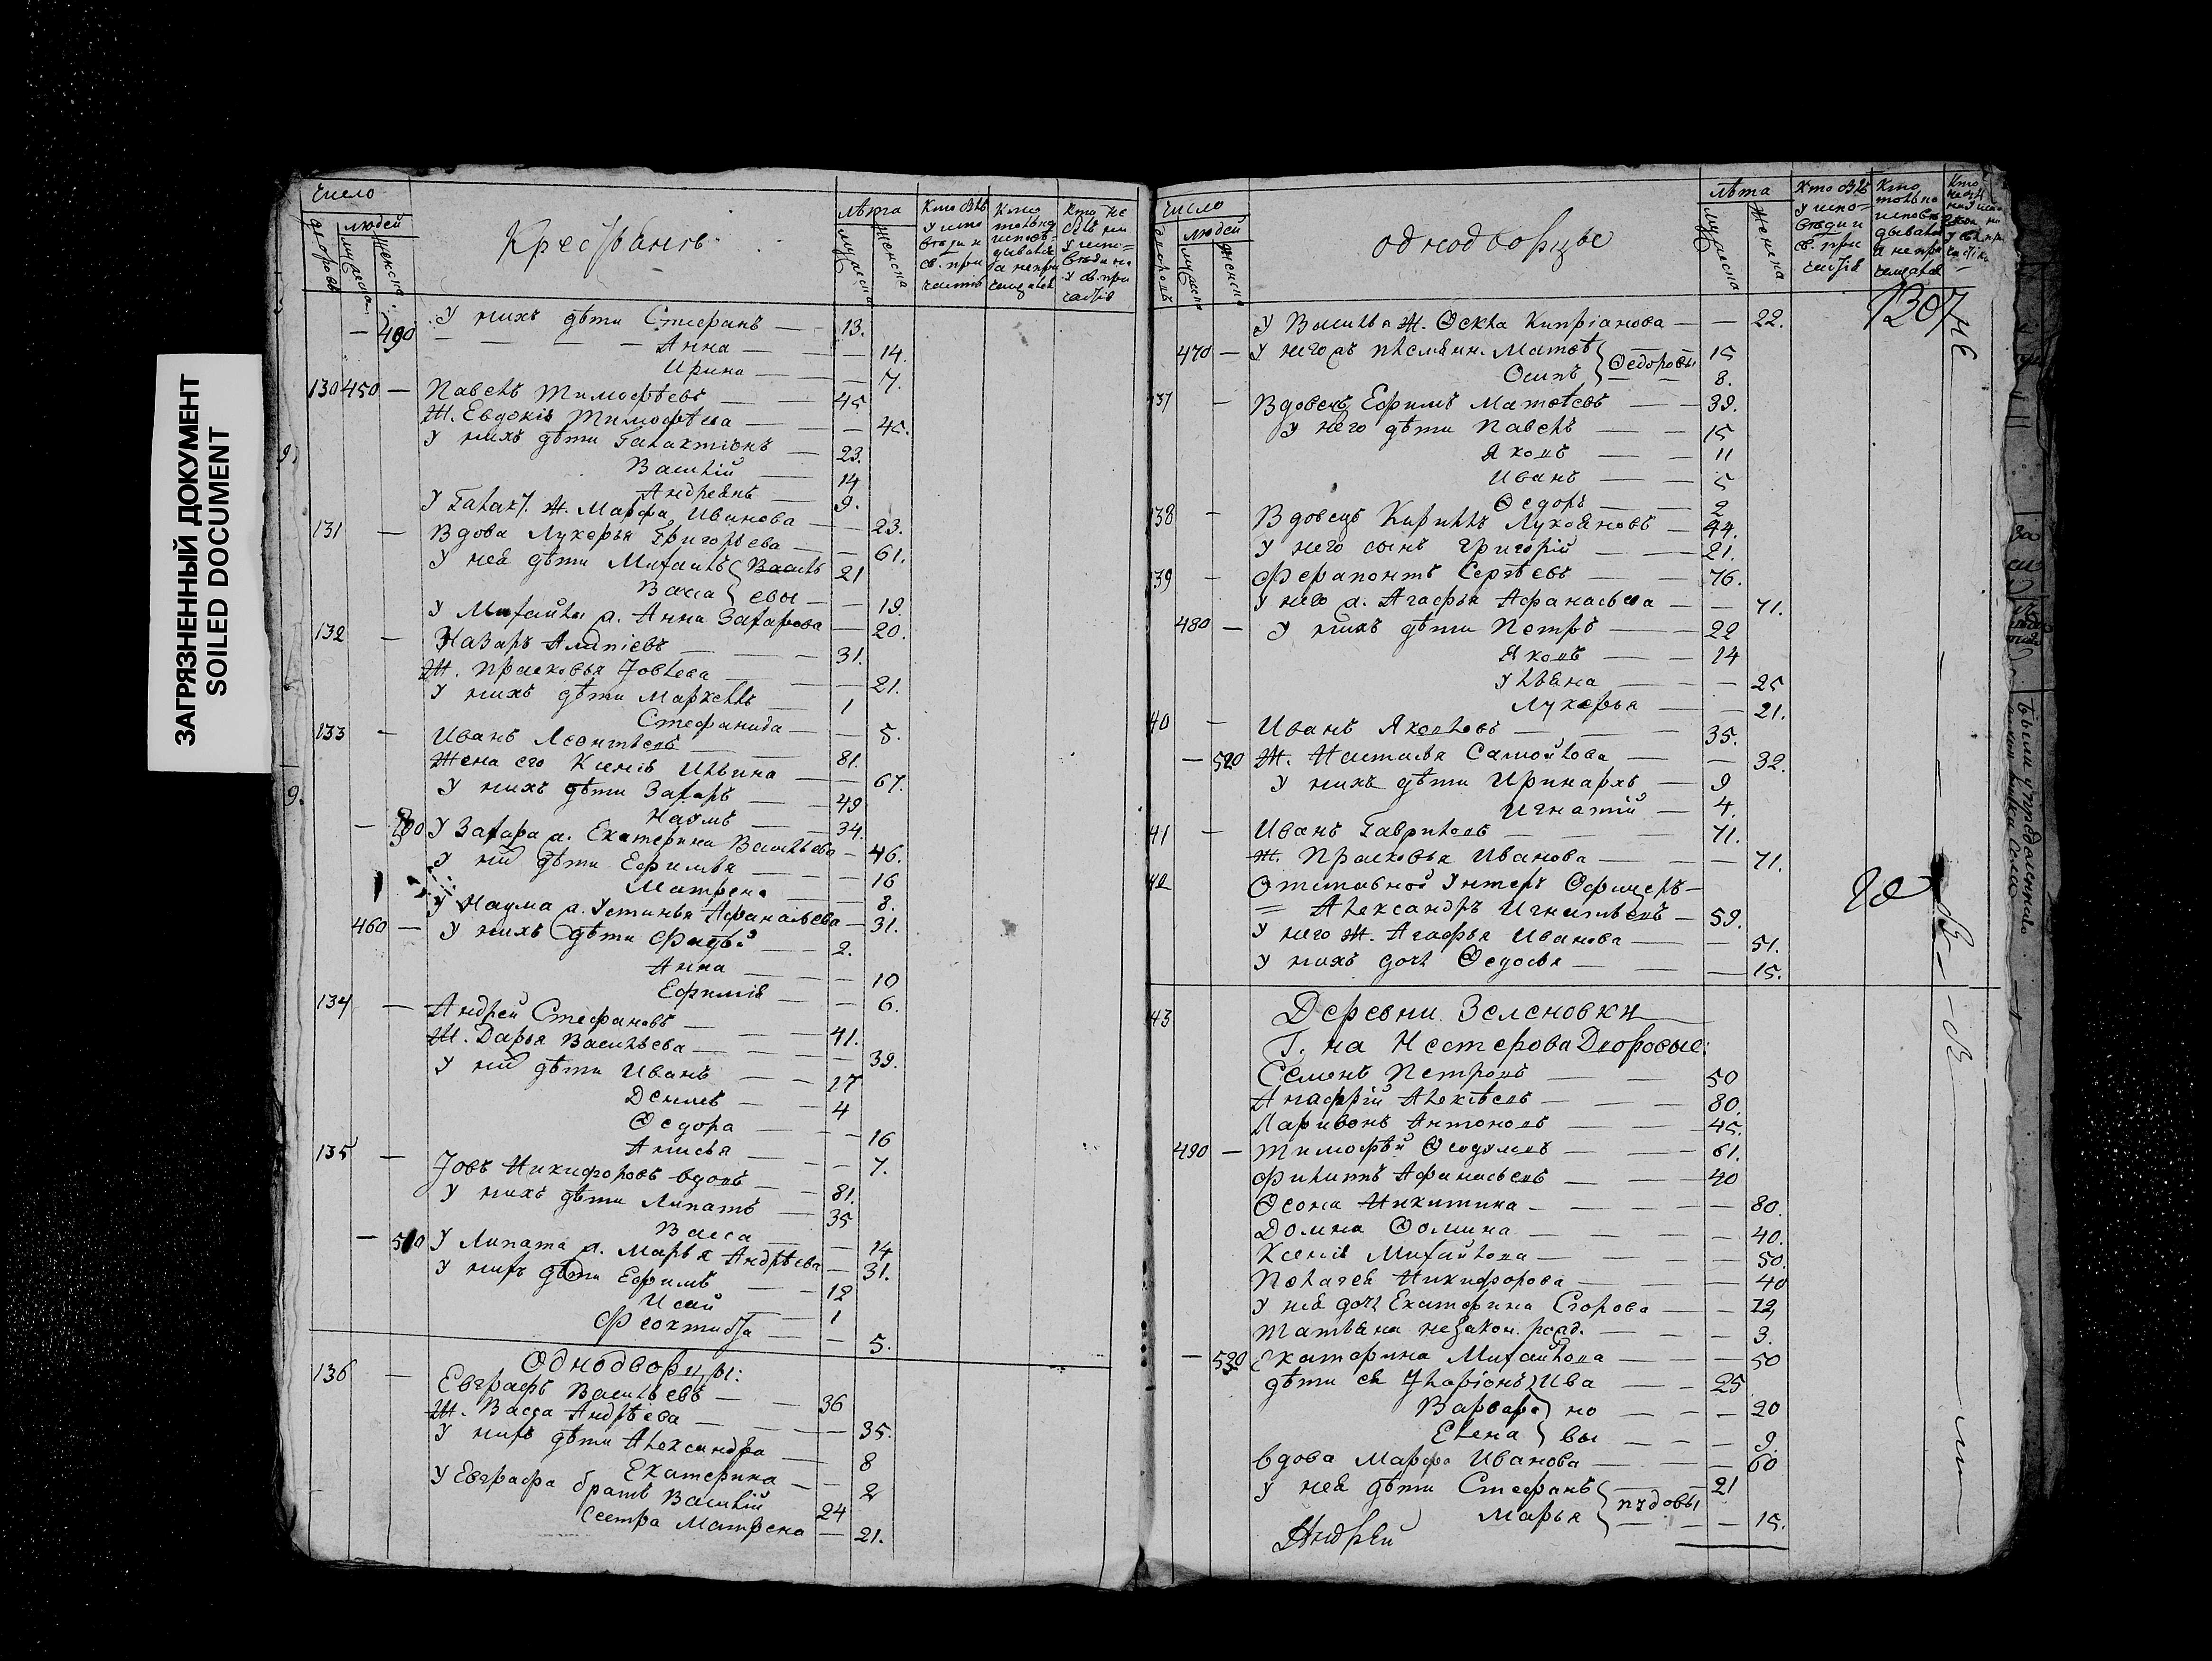 ЗАГРЯЗНЕННЫЙ ДОКУМЕНТ
SOILED DOCUMENT
число
дворовъ
людей
мужеска
женска
Крестьянъ
лѣта
мужеска
женска
У нихъ дѣти Стефанъ — 13.
Анна — 14.
Ирина — 7.
130 450 — Павелъ Тимофѣевъ — 45
Ж. Евдокія Тимофѣева — 45.
У нихъ дѣти Галактіонъ — 23.
Василій — 14
Андреянъ — 9.
У Галакт. ж. Марфа Иванова — 23.
131 — Вдова Лукерья Григорьева — 61.
У ней дѣти Михаилъ Василь 21
Васса евы — 19.
У Михайлы ж. Анна Захарова — 20.
132 — Назаръ Алипіевъ — 31.
Ж. Прасковья Іовлева — 21.
У нихъ дѣти Маркеллъ — 1
Стефанида — 5.
133 — Иванъ Леонтьевъ — 81.
Жена его Ксенія Ильина — 67.
У нихъ дѣти Захаръ — 49
Наумъ — 34.
У Захара ж. Екатерина Васильева — 46.
У ній дѣти Ефимья — 16
Матрена — 8.
У Наума ж. Устинья Афанасьева — 31.
460 — У нихъ дѣти Фадѣй — 2.
Анна — 10
Ефимія — 6.
134 — Андрей Стефановъ — 41.
Ж. Дарья Васильева — 39.
У ній дѣти Иванъ — 17
Денисъ — 4
Ѳедора — 16
Анисья — 7.
135 — Іовъ Никифоровъ вдовъ — 81.
У нихъ дѣти Липатъ — 35
Васса — 14
— 510 У Липата ж. Марья Андрѣева — 31.
У нихъ дѣти Ефимъ — 12
Исай — 1
Феоктиста — 5.
Однодворцы:
136 — Евграфъ Васильевъ — 36
Ж. Васса Андрѣева — 35.
У нихъ дѣти Александра — 8
Екатерина — 2
У Евграфа братъ Василій 24
Сестра Матрена — 21.
число
людей
мужеска
женска
однодворцы
лѣта
мужеска
женска
1307
У Василья ж. Ѳекла Кипріанова — 22.
470 — У него въ племян. Матѳѣй Ѳедоровы 15
Осипъ — 8.
137 — Вдовецъ Ефимъ Матѳеевъ — 39.
У него дѣти Павелъ — 15
Яковъ — 11
Иванъ — 5
Ѳедоръ — 2
138 — Вдовецъ Кириллъ Лукояновъ — 44.
У него сынъ Григорій — 21.
139 — Ферапонтъ Сергѣевъ — 76.
У него ж. Агафья Афанасьева — 71.
480 — У нихъ дѣти Петръ — 22
Яковъ — 14
Ульяна — 25
Лукерья — 21.
40 — Иванъ Яковлевъ — 35.
— 520 Ж. Настасья Самойлова — 32.
У нихъ дѣти Иринархъ — 9
Игнатій — 4.
41 — Иванъ Гавриловъ — 71.
Ж. Прасковья Иванова — 71.
42 Отставной Унтеръ Офицеръ —
= Александръ Игнатьевъ — 59.
У него ж. Агафья Иванова — 51.
У нихъ дочь Ѳедосья — 15.
43 Деревни Зеленовки
Г. на Нестерова Дворовые:
Семенъ Петровъ — 50
Анафрій Алексѣевъ — 80.
Ларивонъ Антоновъ — 45.
490 — Тимофѣй — 61.
Филиппъ Афанасьевъ — 40
Ѳеона Никитина — 80.
Домна Ѳомина — 40.
Ксенія Михайлова — 50.
Пелагея Никифорова — 40
У нея дочь Екатерина Егорова — 12
Татьяна незакон. рожд. — 3.
— 530 Екатерина Михайлова — 50
дѣти ея Иларіонъ Ива — 25
Варвара но — 20
Елена вы — 9.
вдова Марфа Иванова — 60
У ней дѣти Стефанъ 21
Марья Пудовы — 15.
Андрей